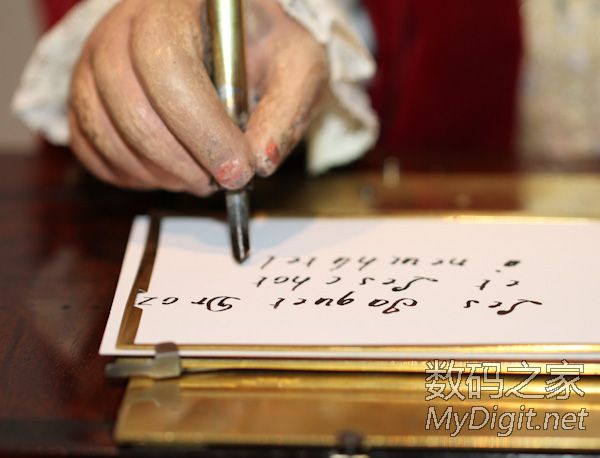 Les Jaquet Droz
et Leschot
à neuchâtel
数码之家
MyDigit.net